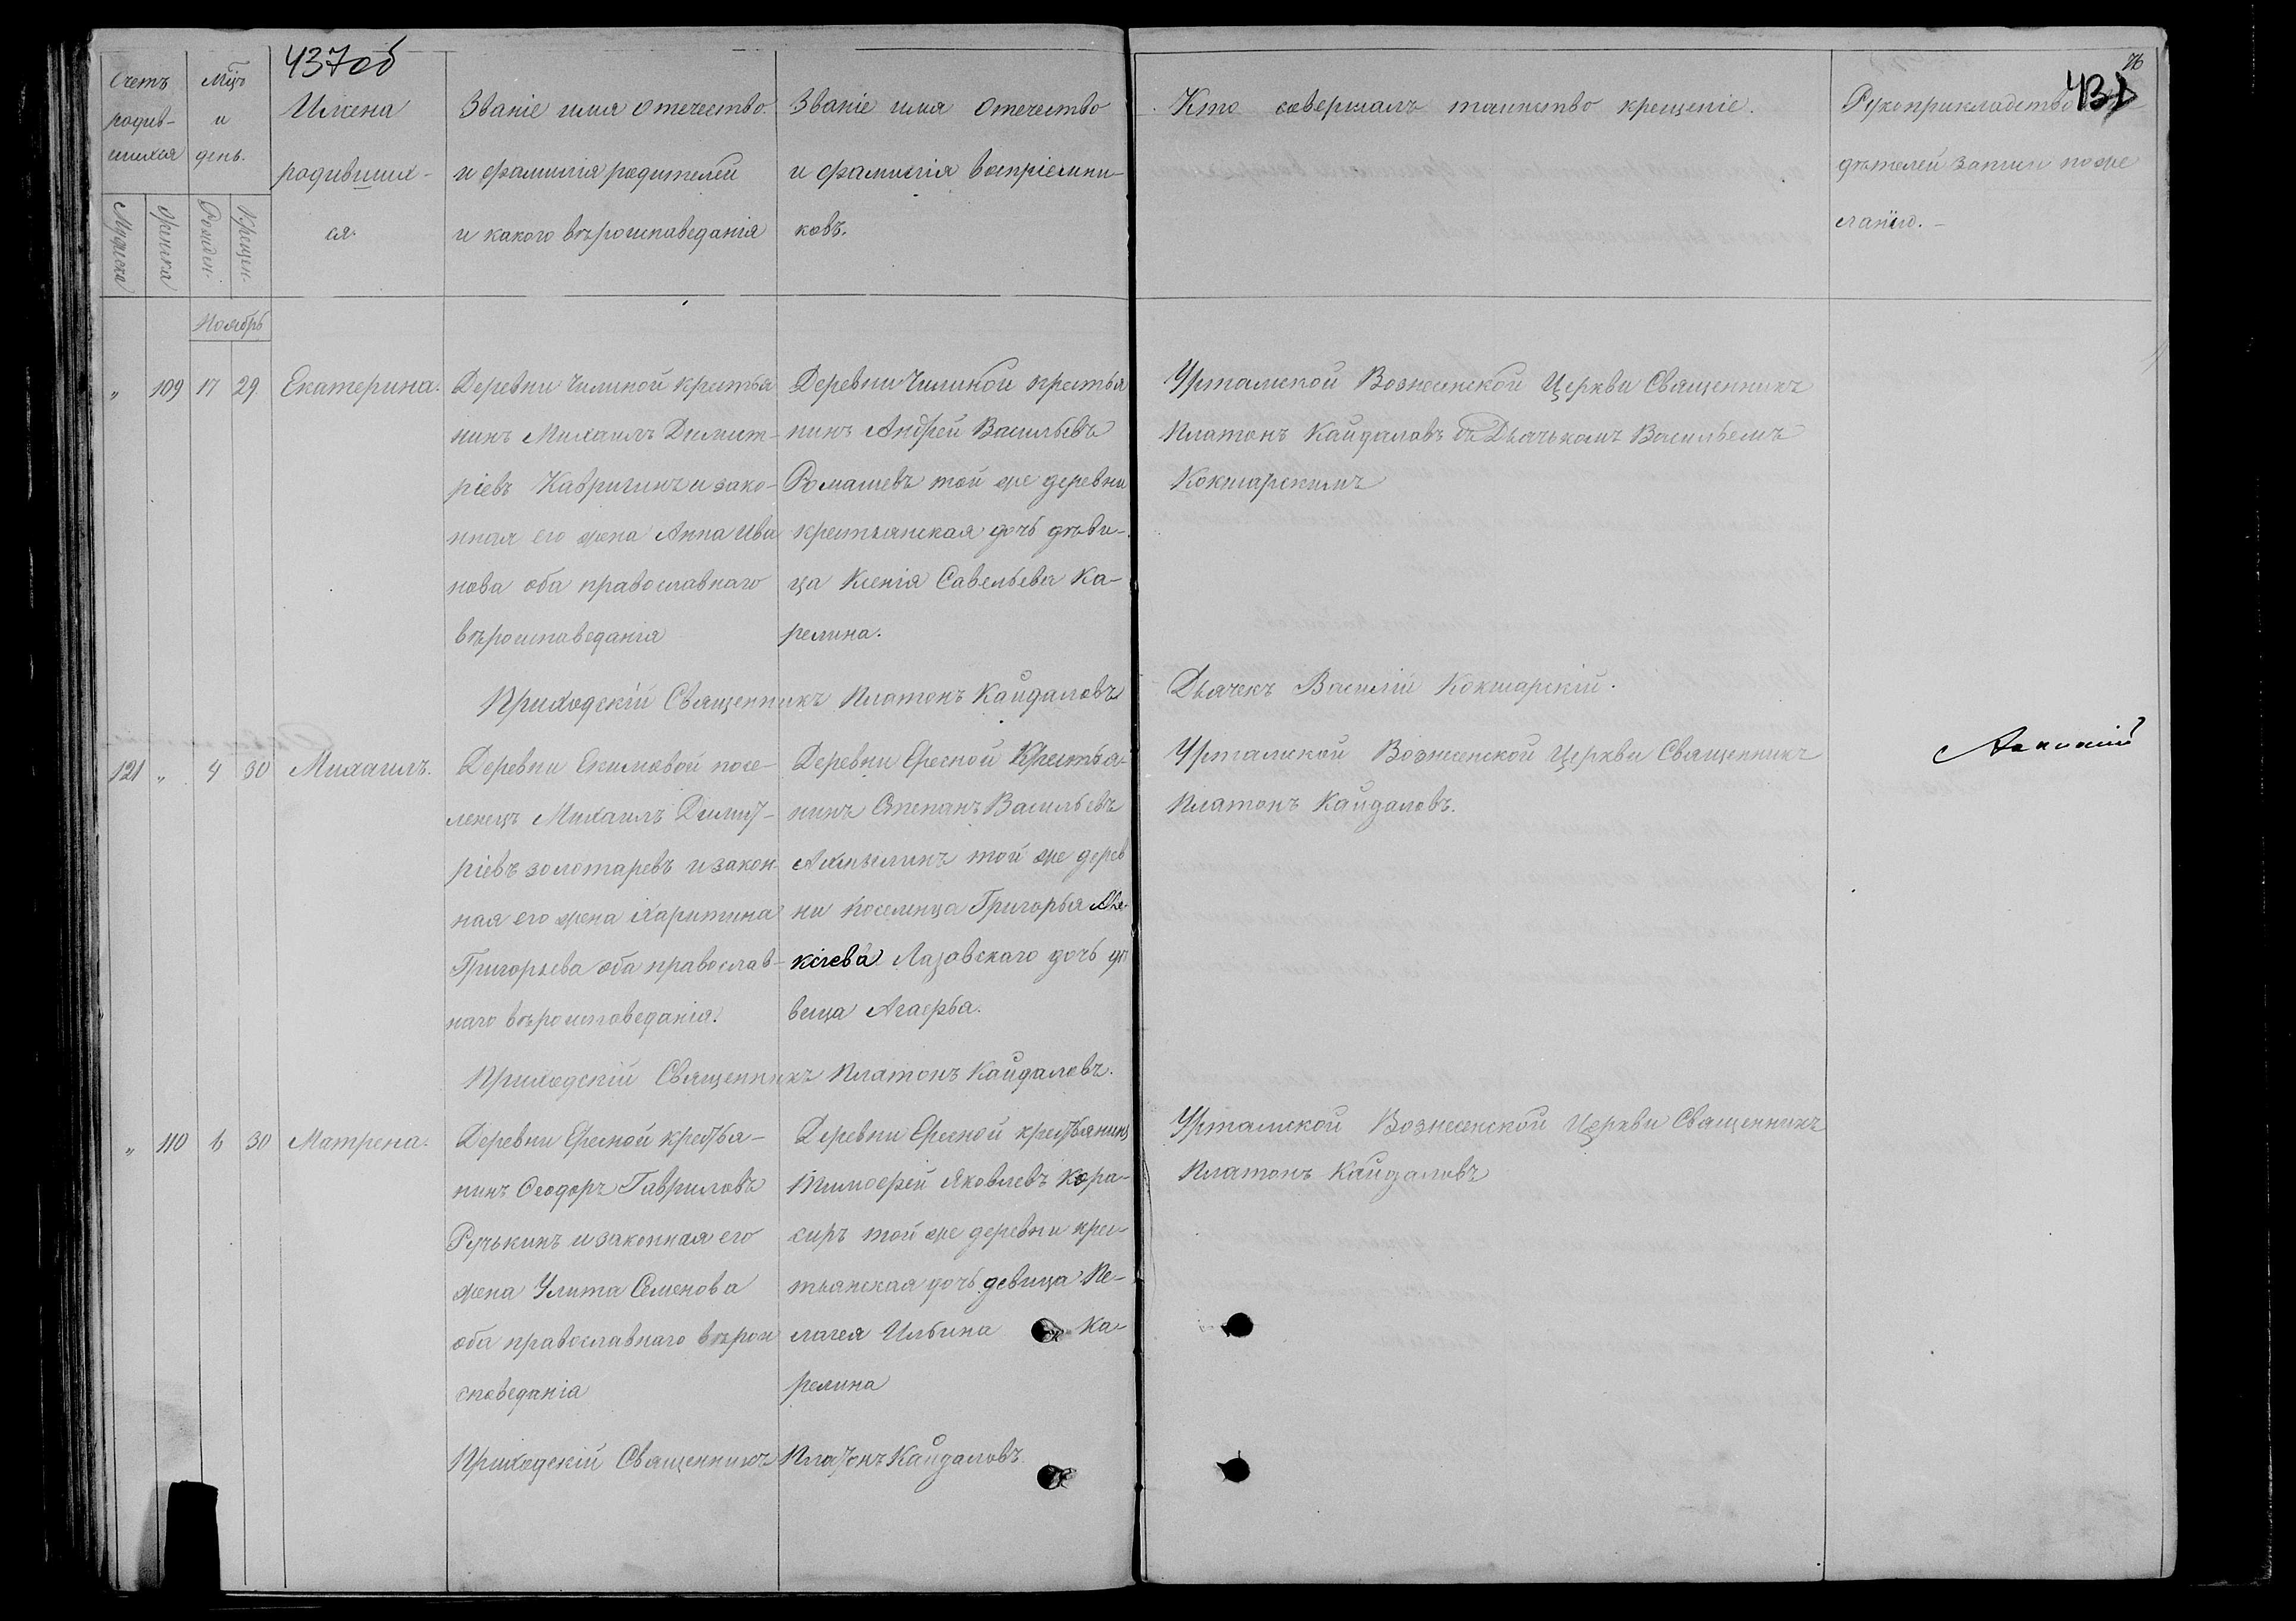 437об
Счетъ родив-шихся
Мужеска
Женска
Мцъ и день.
Рожден.
Крещен.
Имена
родивших-
ся.
Званіе имя отечество
и фамилія родителей
и какого вѣроисповеданія
Званіе имя отечество
и фамилія воспріемни-
ковъ.
Кто совершалъ таинство крещеніе.
76
Рукоприкладство
дѣтелей записи по же
ланію.
Ноябрь
" 109 17 29. Екатерина.
Деревни Чилиной крестья
нинъ Михаилъ Димит-
ріевъ Кавригинъ и зако-
нная его жена Анна Ива
нова оба православнаго
вѣроисповеданія
Деревни Чилиной крестья
нинъ Андрей Васильевъ
Ромашевъ той же деревни
крестьянская дочь дѣви-
ца Ксенія Савельева Ка-
релина.
Уртамской Вознесенской Церкви Священникъ
Платонъ Кайдаловъ съ Дьячькомъ Васильемъ
Кокшарскимъ
Приходскій Священникъ Платонъ Кайдаловъ
Дьячекъ Василій Кокшарскій.
121 " 4 30 Михаилъ.
Деревни Екимовой посе-
ленецъ Михаилъ Димит-
ріевъ золотаревъ и закон-
ная его жена Харитина
Григорьева оба православ-
наго вѣроисповеданія.
Деревни Ересной Крестья-
нинъ Степанъ Васильевъ
той же дерев
ни поселенца Григорья Але-
ксіева Лазовскаго дочь дѣ
веца Агафья.
Уртамской Вознесенской Церкви Священникъ
Платонъ Кайдаловъ.
Приходскій Священникъ Платонъ Кайдаловъ.
" 110 6 30 Матрена.
Деревни Ересной крестья-
нинъ Феодоръ Гавриловъ
Ручькинъ и законная его
жена Улита Семенова
оба православнаго вѣрои
споведанія
Деревни Ересной крестьянинъ
Тимофей Яковлевъ Кора-
сиръ той же деревни крес-
тьянская дочь девица Пе-
лагея Ильина Ка-
релина
Уртамской Вознесенской Церкви Священникъ
Платонъ Кайдаловъ
Приходскій Священникъ Платонъ Кайдаловъ.